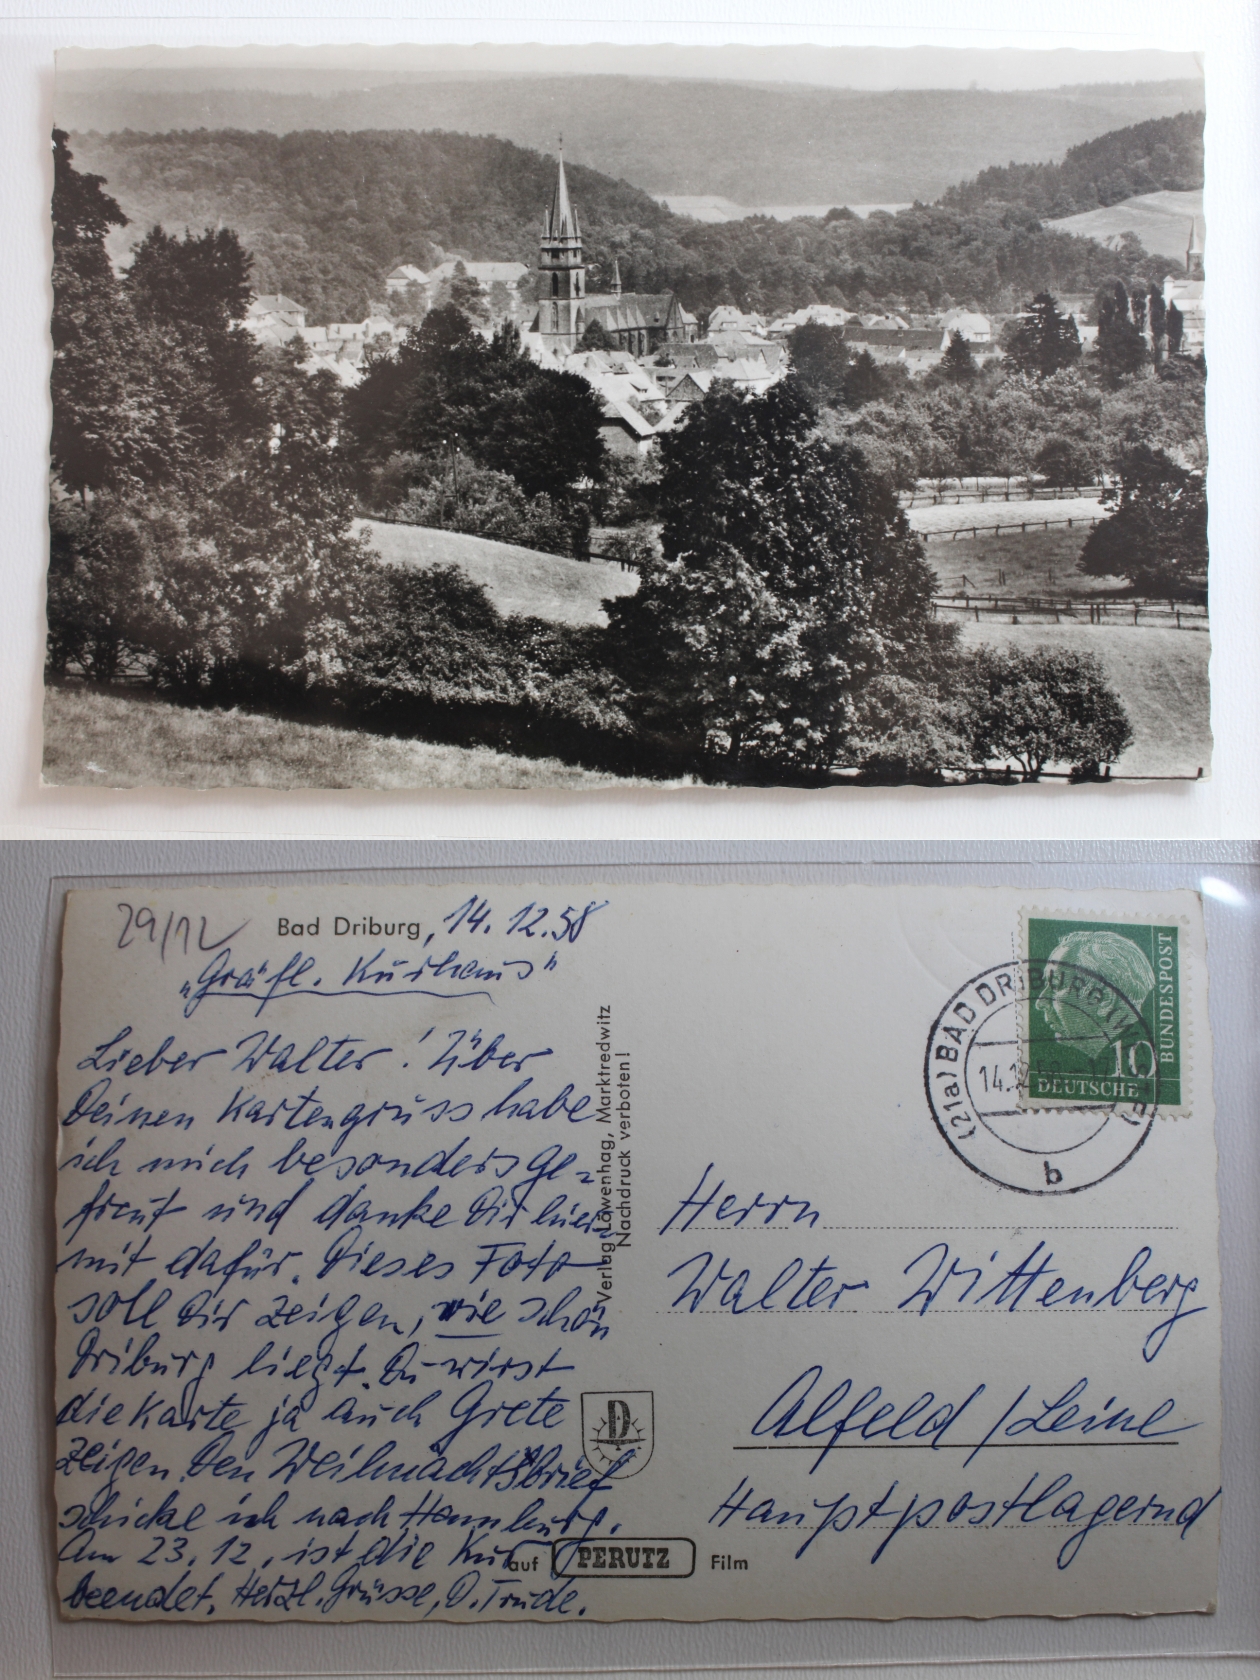 29/12
Bad Driburg, 14.12.58
„Gräfl. Kurhaus"
Lieber Walter! Über
Deinen Kartengruss habe
ich mich besonders ge-
freut und danke Dir hier-
mit dafür. Dieses Foto
soll Dir zeigen, wie schön
Driburg liegt. Du wirst
die Karte ja auch Grete
zeigen. Den Weihnachtsbrief
schicke ich nach Hamburg.
Am 23.12. ist die Kur
beendet. Herzl. Grüsse, D. Trude.
Verlag Löwenhag, Marktredwitz
Nachdruck verboten!
D
auf PERUTZ Film
BUNDESPOST
10
DEUTSCHE
(21a) BAD DRIBURG (WESTF)
14.12.58
b
Herrn
Walter Wittenberg
Alfeld/Leine
Hauptpostlagernd